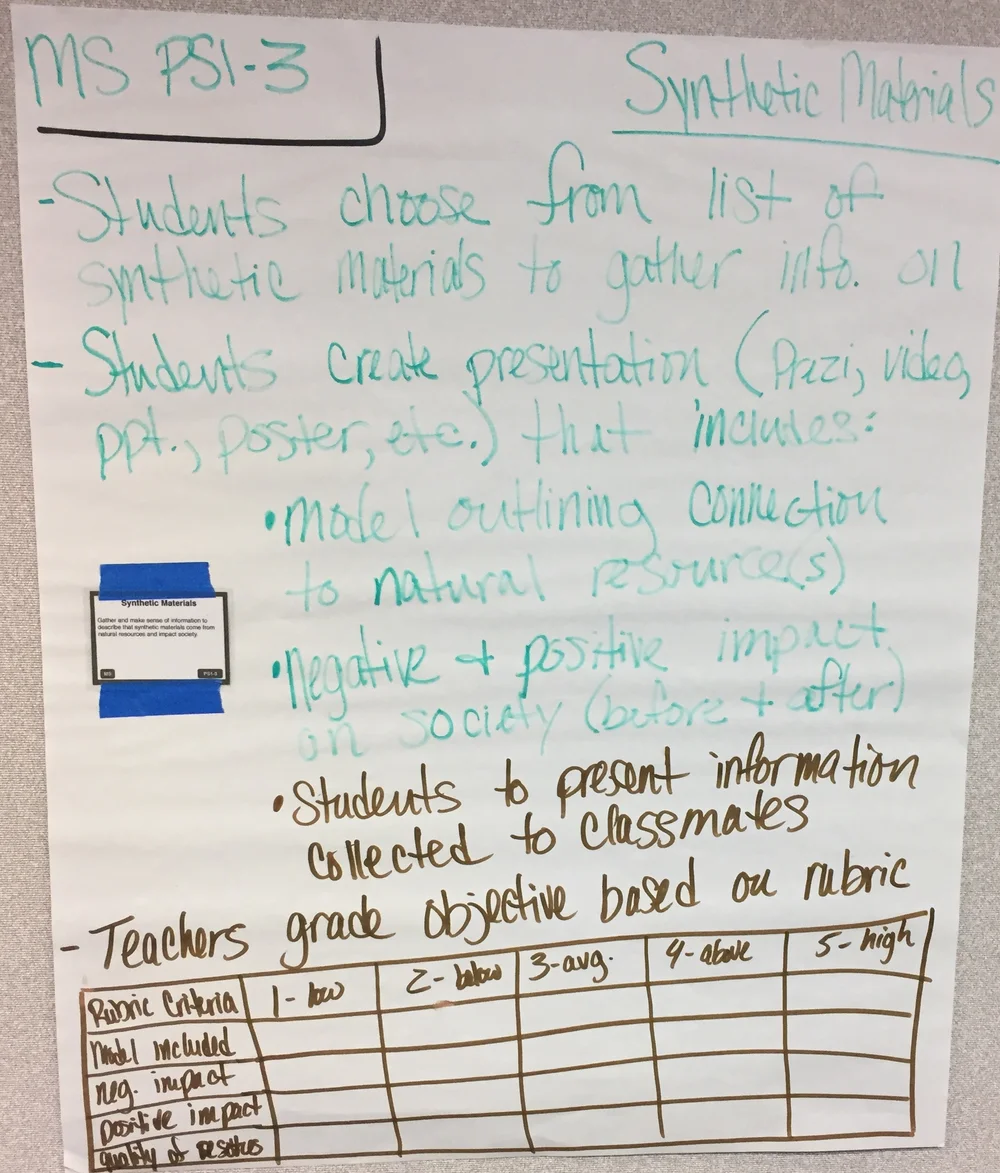 MS PS1-3
Synthetic Materials
- Students choose from list of
synthetic materials to gather info. on
- Students create presentation (Prezi, video,
ppt., poster, etc.) that includes:
• Model outlining connection
to natural resource(s)
• Negative + positive impact
on society (before + after)
• Students to present information
collected to classmates
- Teachers grade objective based on rubric
Synthetic Materials
Gather and make sense of information to
describe that synthetic materials come from
natural resources and impact society.
MS PS1-3
Rubric Criteria 1- low 2- below 3-avg. 4-above 5-high
Model included
neg. impact
positive impact
quality of